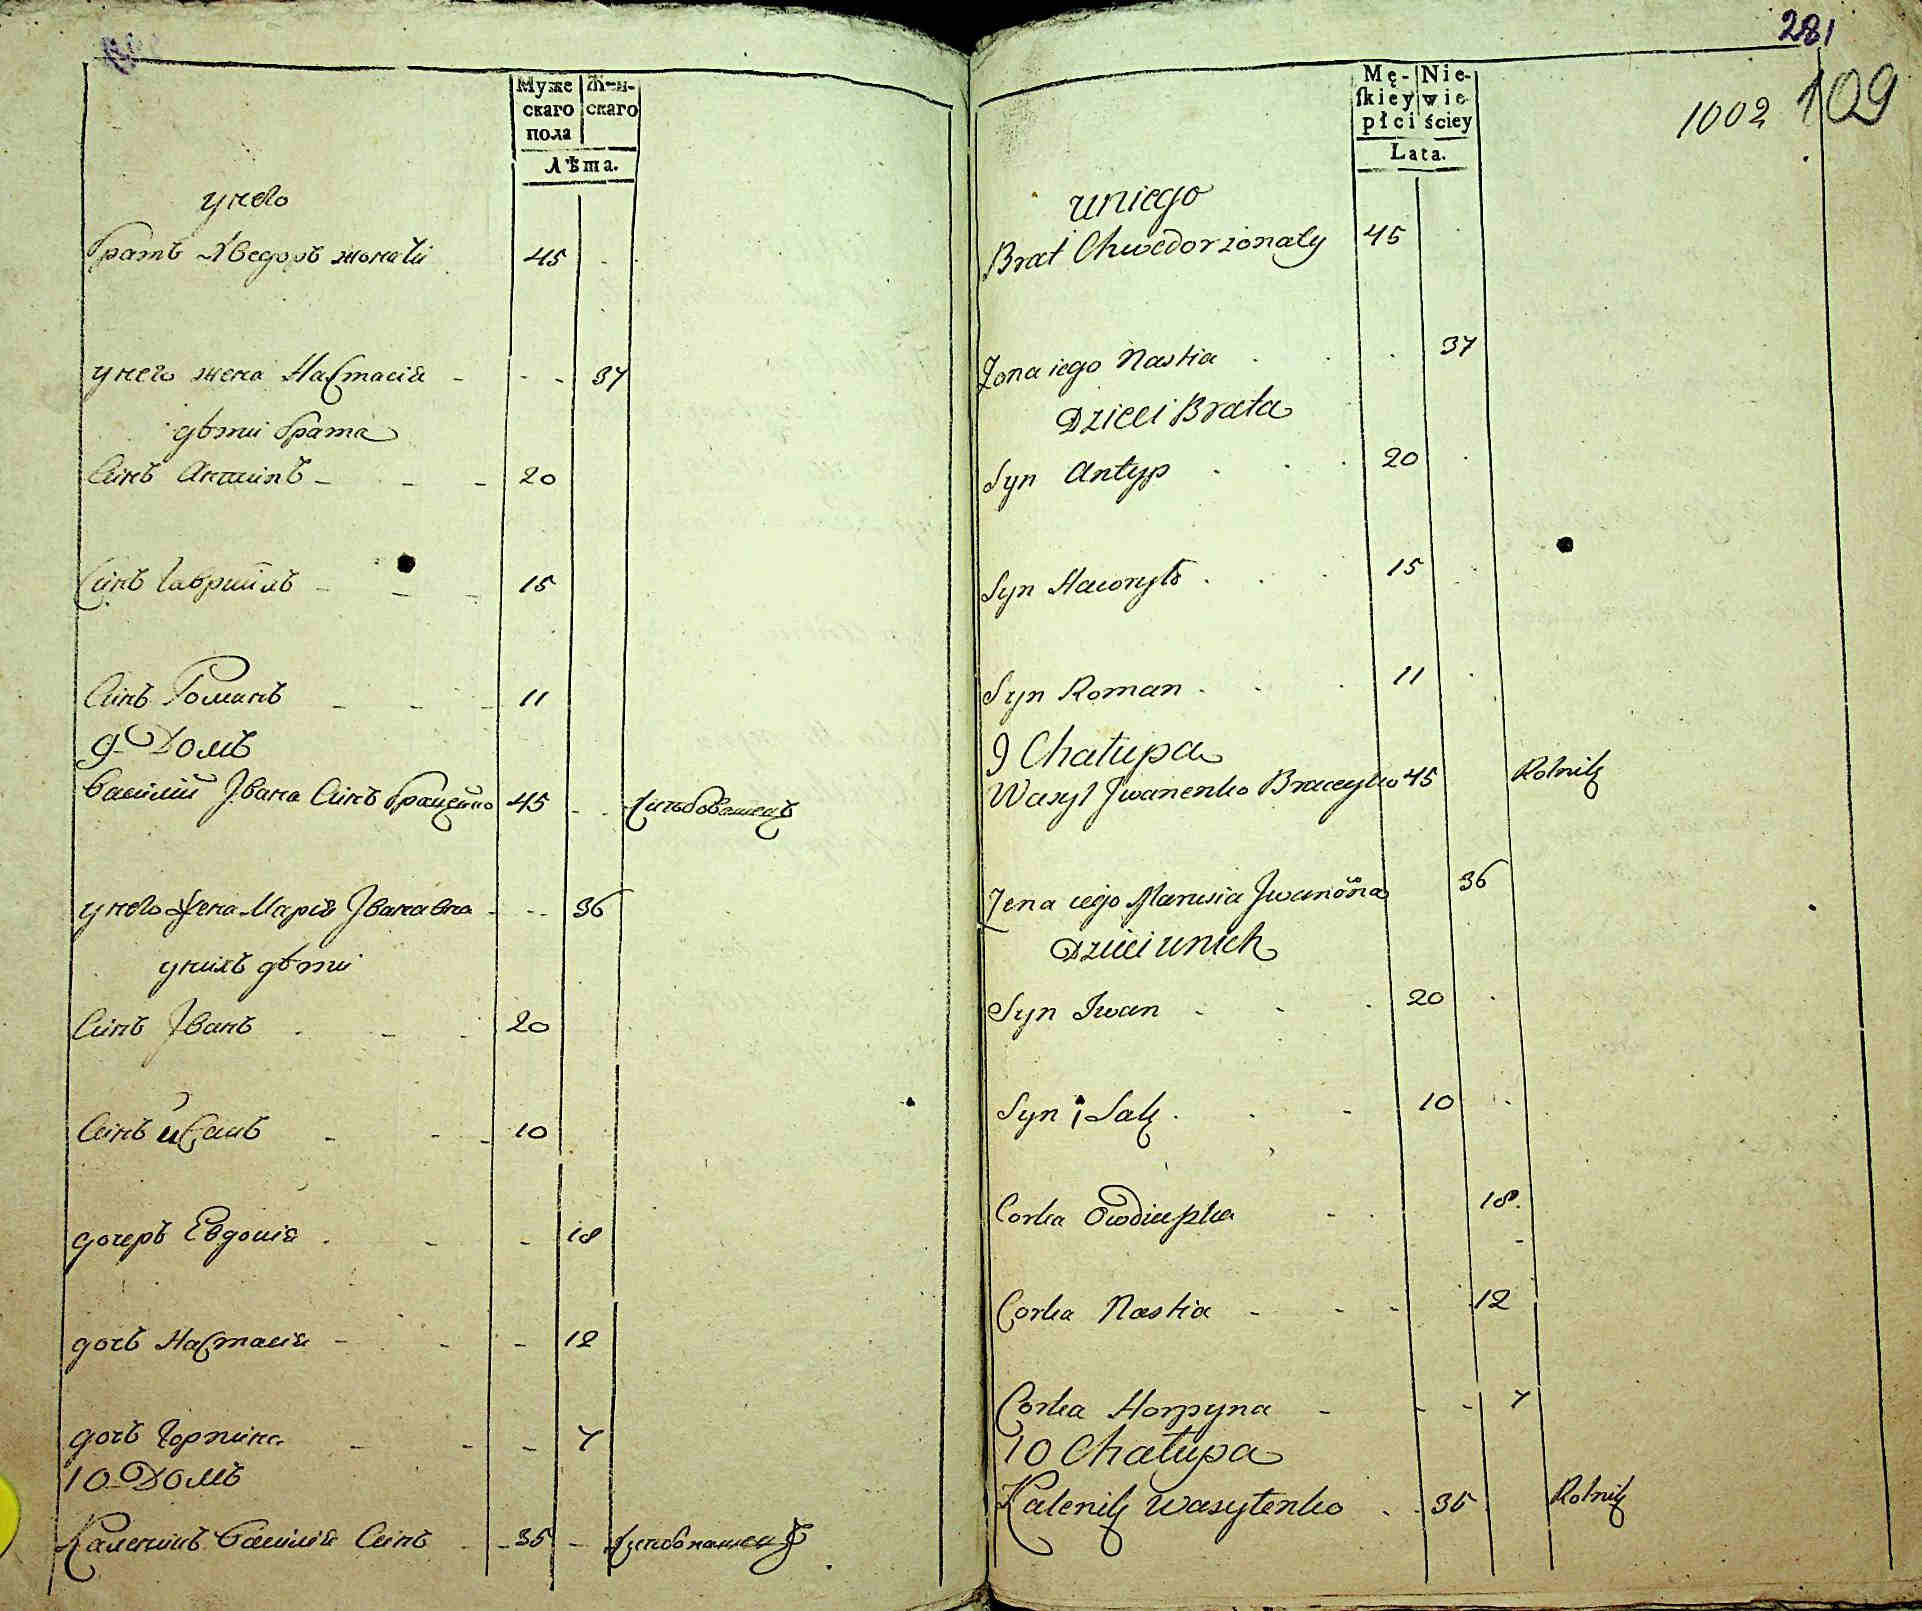 Муже Жен-
скаго скаго
пола
Лѣта.
у него
братъ Хведоръ жонатй 45
у него жена Настасія 37
дѣти брата
Синъ Антипъ 20
Синъ Гаврийлъ 15
Синъ Романъ 11
9 Домъ
Василій Івана Синъ 45
у него жена Марія Івановна 36
у нихъ дѣти
Синъ Іванъ 20
Синъ 10
дочеръ Евдокія 18
дочъ Настасія 12
дочъ Горпина 7
10 Домъ
Каленикъ Василія Синъ 35
281
109
1002
Mę- Nie-
ſkiey wie-
płci ściey
Lata.
u niego
Brat Chwedor żonaty 45
Żona iego Nastia 37
Dzieci Brata
Syn Antyp 20
Syn Hawryło 15
Syn Roman 11
9 Chałupa
Wasyl Jwanenko Braceyko 45 Rolnik
Żona iego Marusia Jwanowna 36
Dzieci u nich
Syn Iwan 20
Syn iSak 10
Corka Owdiuszka 18
Corka Nastia 12
Corka Horpyna 7
10 Chałupa
Kalenik Wasylenko 35 Rolnik